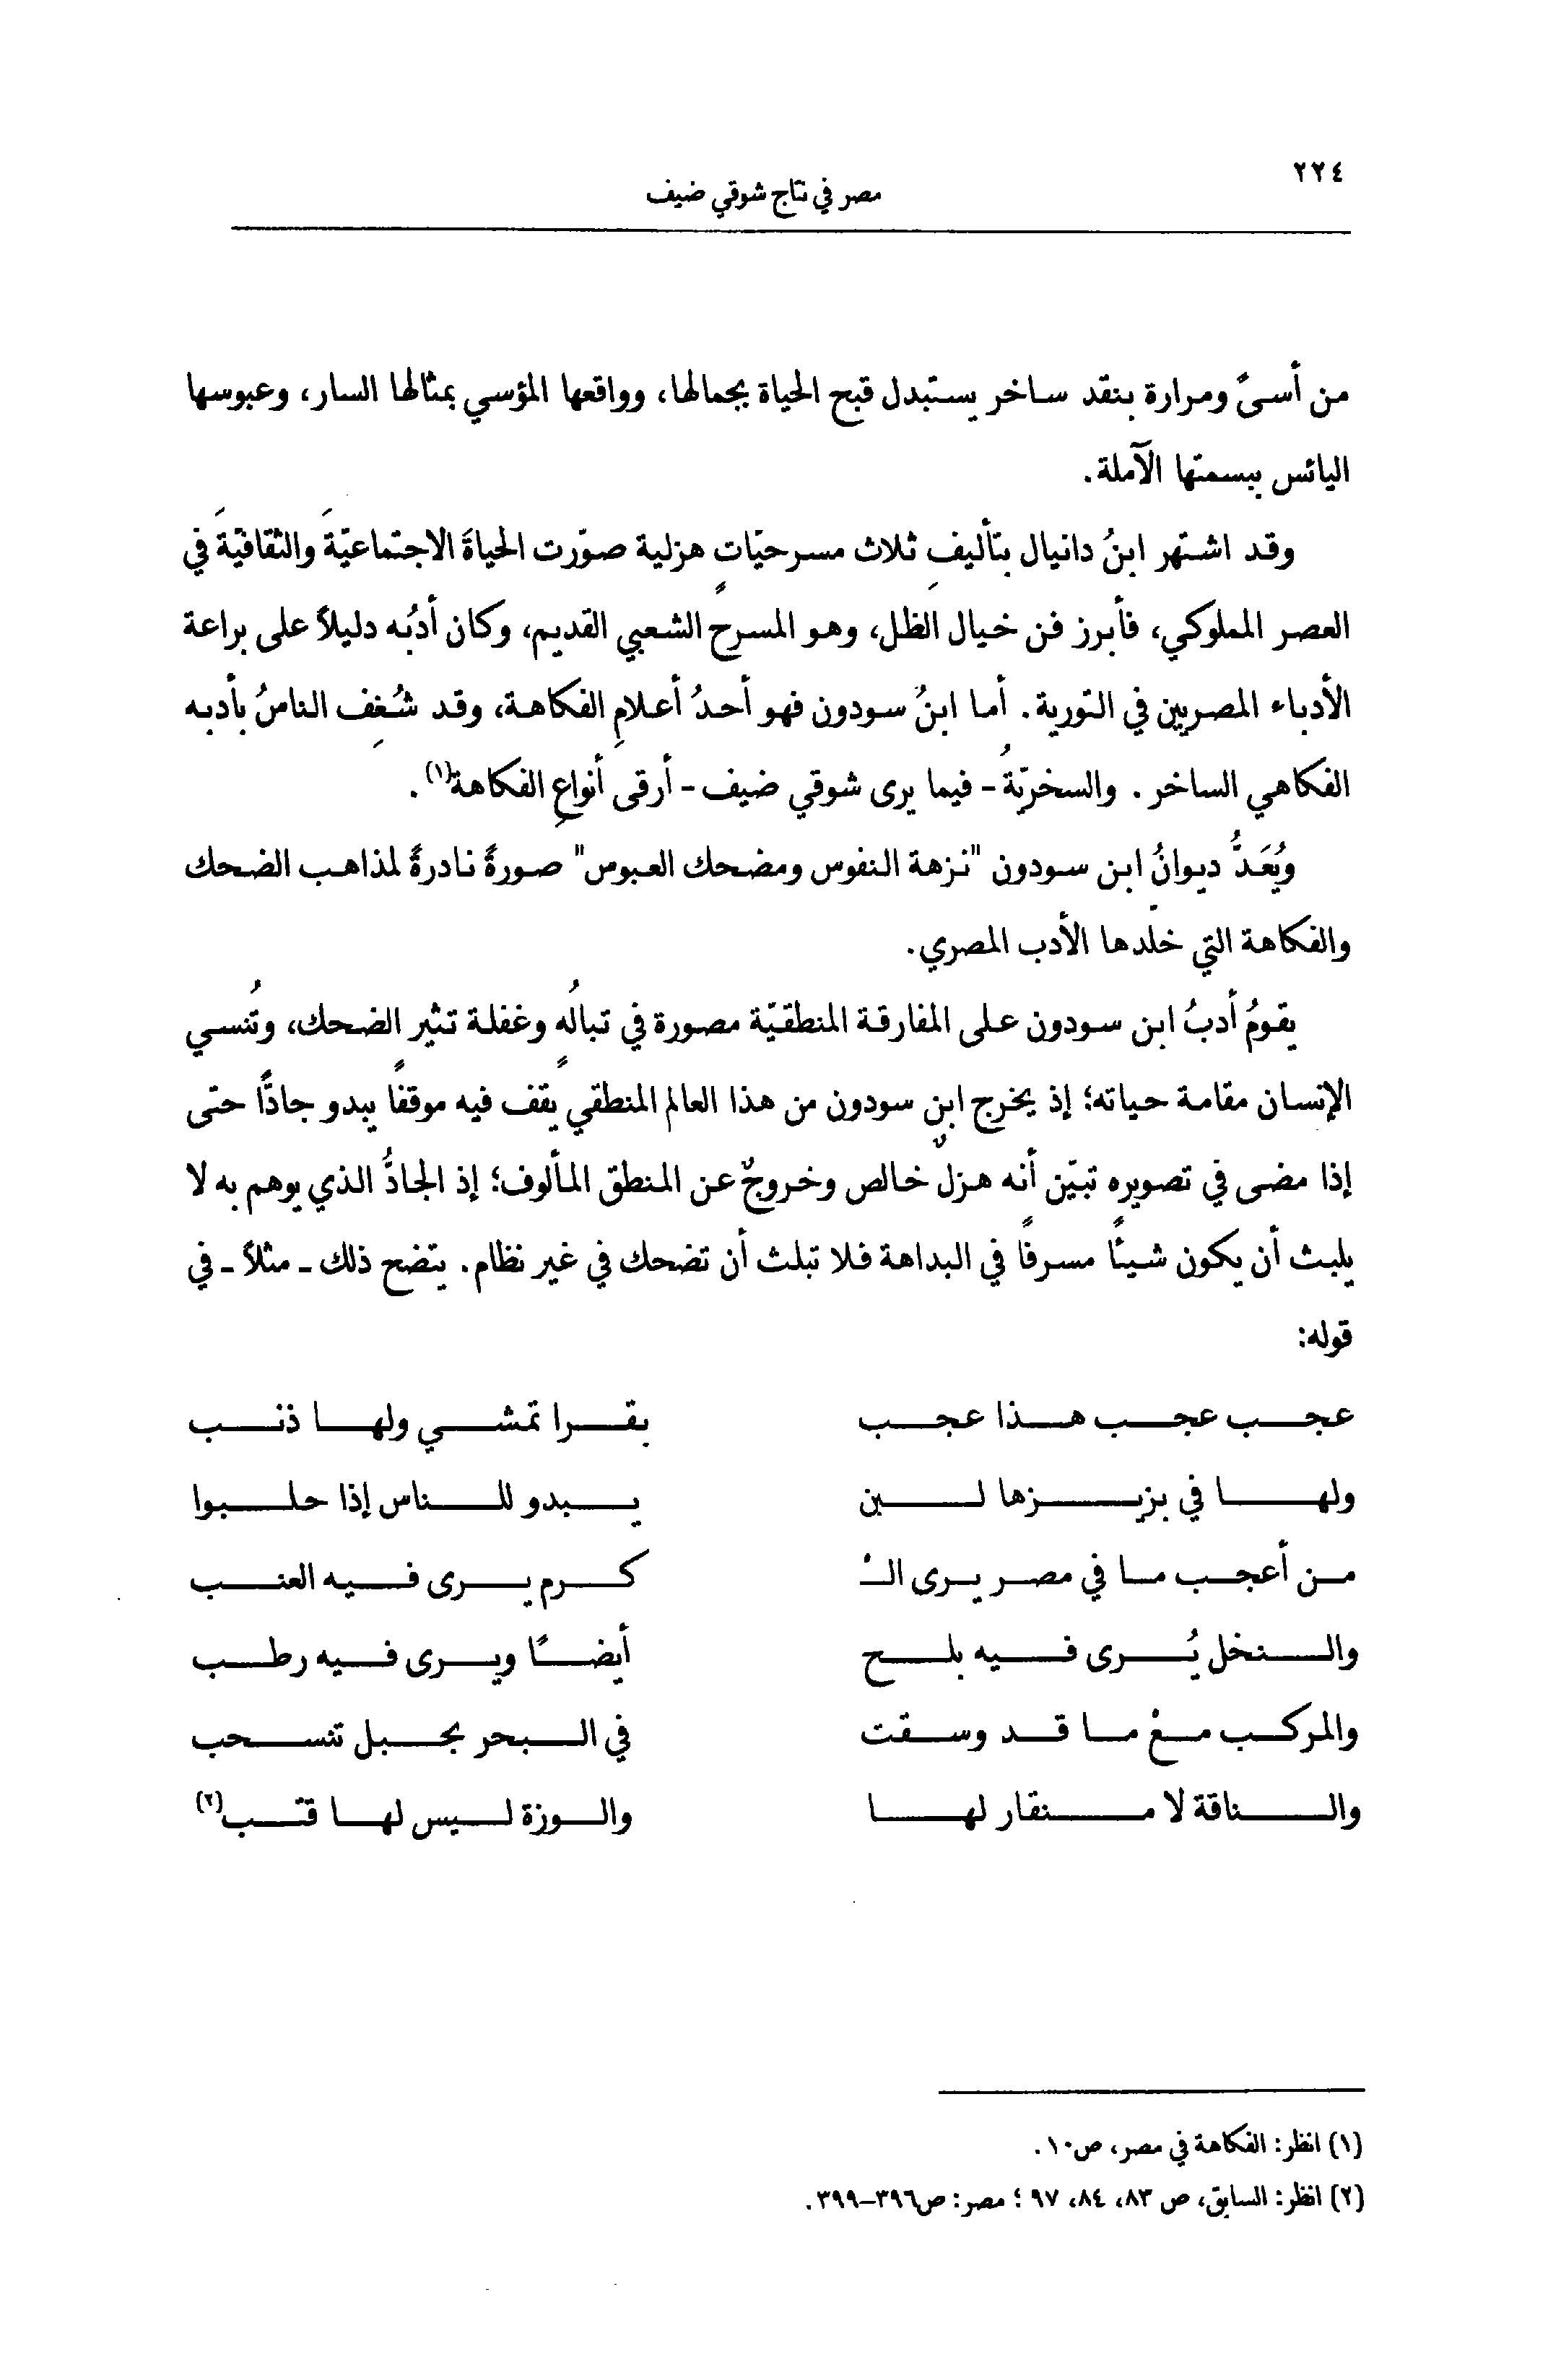 ٢٢٤
مصر في نتاج شوقي ضيف
من أسىً ومرارة بنقد ساخر يستبدل قبح الحياة بجمالها، وواقعها المؤسي بمثالها السار، وعبوسها
اليائس ببسمتها الآملة.
وقد اشتهر ابنُ دانيال بتأليفِ ثلاث مسرحيّاتٍ هزلية صوّرت الحياةَ الاجتماعيّةَ والثقافيّةَ في
العصر المملوكي، فأبرز فن خيال الظل، وهو المسرح الشعبي القديم، وكان أدبُه دليلاً على براعة
الأدباء المصريين في التورية. أما ابنُ سودون فهو أحدُ أعلامِ الفكاهة، وقد شُغِف الناسُ بأدبه
الفكاهي الساخر. والسخريّةُ - فيما يرى شوقي ضيف - أرقى أنواعِ الفكاهة(١).
ويُعَدُّ ديوانُ ابن سودون "نزهة النفوس ومضحك العبوس" صورةً نادرةً لمذاهب الضحك
والفكاهة التي خلّدها الأدب المصري.
يقومُ أدبُ ابن سودون على المفارقة المنطقيّة مصورة في تبالُهٍ وغفلة تثير الضحك، وتُنسي
الإنسان مقامة حياته؛ إذ يخرج ابن سودون من هذا العالم المنطقي يقف فيه موقفًا يبدو جادًّا حتى
إذا مضى في تصويره تبيّن أنه هزلٌ خالص وخروجٌ عن المنطق المألوف؛ إذ الجادُّ الذي يوهم به لا
يلبث أن يكون شيئًا مسرفًا في البداهة فلا تبلث أن تضحك في غير نظام. يتضح ذلك - مثلاً - في
قوله:
عجب عجب هذا عجب بقرا تمشي ولها ذنب
ولها في بزيزها لبن يبدو للناس إذا حلبوا
من أعجب ما في مصر يرى الـْ كرم يرى فيه العنب
والنخل يُرى فيه بلح أيضًا ويرى فيه رطب
والمركب معْ ما قد وسقت في البحر بحبل تنسحب
والناقة لا منقار لها والوزة ليس لها قتب(٢)
(١) انظر: الفكاهة في مصر، ص١٠.
(٢) انظر: السابق، ص ٨٣، ٨٤، ٩٧ ؛ مصر: ص٣٩٦-٣٩٩.